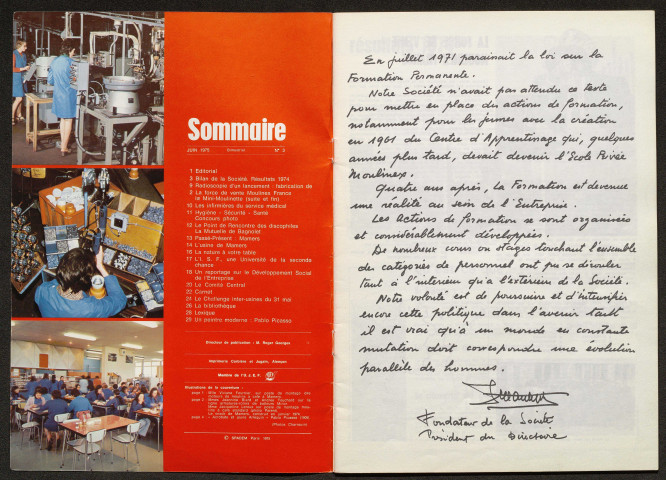 Sommaire
JUIN 1975 Trimestriel N° 5
1 Editorial
3 Bilan de la Société. Résultats 1974
9 Radioscopie d'un lancement : fabrication de
9 La force de vente Moulinex France
le Mini-Moulinette (suite et fin)
10 Les infirmières du service médical
11 Hygiène - Sécurité - Santé
Concours photo
12 Le Point de Rencontre des discophiles
La Mutuelle de Bagnolet
13 Passé-Présent : Mamers
14 L'usine de Mamers
16 La nature à votre table
17 L'I. S. F., une Université de la seconde
chance
18 Un reportage sur le Développement Social
de l'Entreprise
20 Le Comité Central
22 Carnet
24 Le Challenge inter-usines du 31 mai
26 La bibliothèque
28 Lexique
29 Un peintre moderne : Pablo Picasso
Directeur de publication : M. Roger Georges
Imprimerie Corbière et Jugain, Alençon
Membre de l'U.J.E.F.
Illustrations de la couverture :
(Photos Clamecin)
© SPADEM Paris 1975
En juillet 1971 paraissait la loi sur la
Formation Permanente.
Notre Société n'avait pas attendu ce texte
pour mettre en place des actions de formation,
notamment pour les jeunes avec la création
en 1961 du Centre d'Apprentissage qui, quelques
années plus tard, devait devenir l'Ecole Privée
Moulinex.
Quatre ans après, la Formation est devenue
une réalité au sein de l'Entreprise.
Les Actions de formation se sont organisées
et considérablement développées.
De nombreux cours ou stages touchant l'ensemble
des catégories de personnel ont pu se dérouler
tant à l'intérieur qu'à l'extérieur de la Société.
Notre volonté est de poursuivre et d'intensifier
encore cette politique dans l'avenir tant
il est vrai qu'à un monde en constante
mutation doit correspondre une évolution
parallèle des hommes.
Fondateur de la Société
Président du Directoire